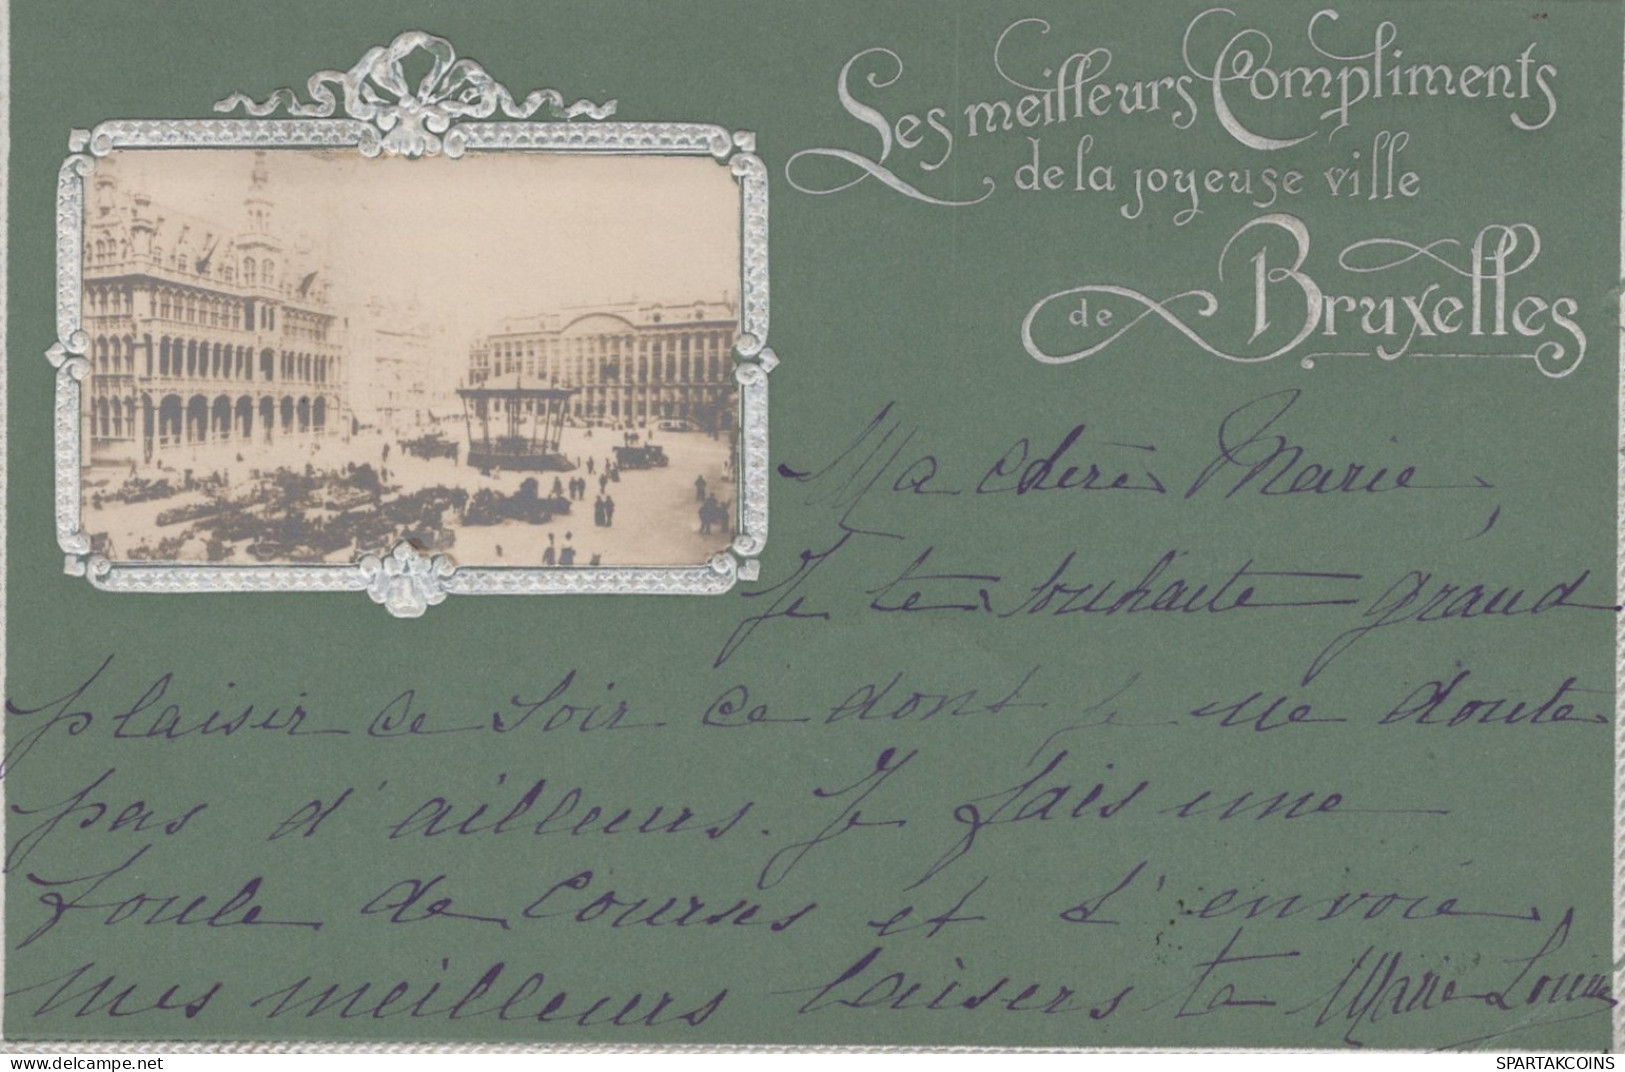 Les meilleurs Compliments
de la joyeuse ville
de Bruxelles
Ma chère Marie,
Je te souhaite grand
plaisir ce soir ce dont je ne doute
pas d'ailleurs. Je fais une
foule de courses et t'envoie
mes meilleurs baisers ta Marie Louise
SPARTAKCOINS